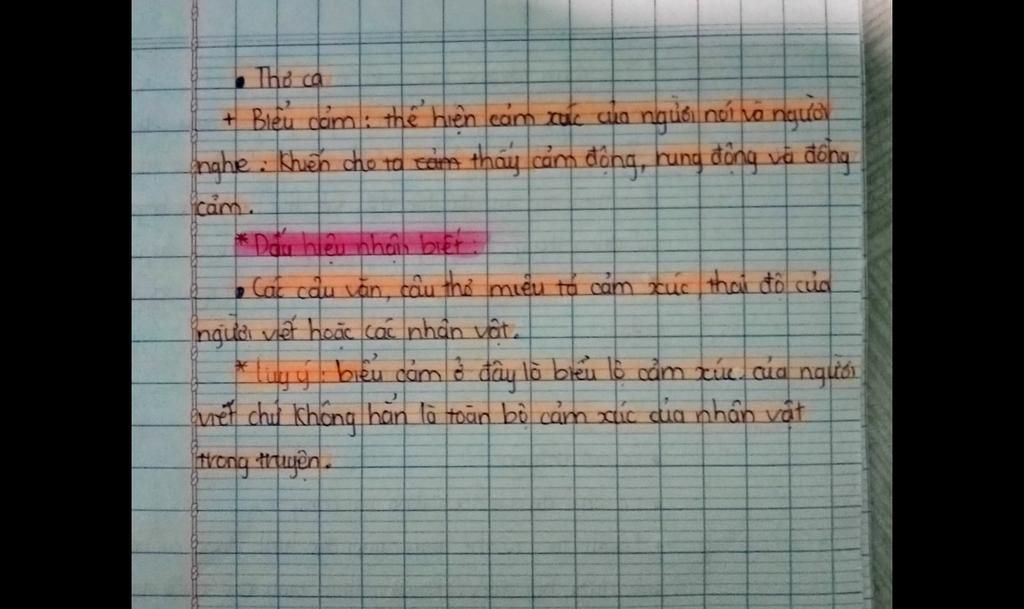 • Thơ ca
+ Biểu cảm: thể hiện cảm xúc của người nói và người
nghe: Khiến cho ta cảm thấy cảm động, rung động và đồng
cảm.
* Dấu hiệu nhận biết:
• Các câu văn, câu thơ miêu tả cảm xúc, thái độ của
người viết hoặc các nhân vật.
* Lưu ý: biểu cảm ở đây là biểu lộ cảm xúc của người
viết chứ không hẳn là toàn bộ cảm xúc của nhân vật
trong truyện.